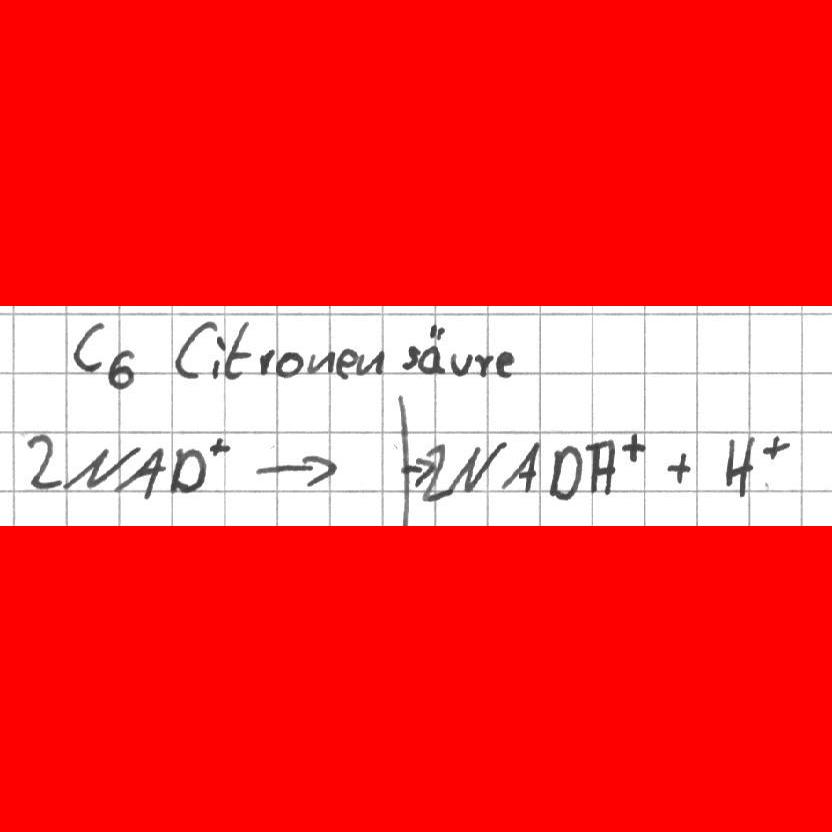 C₆ Citronensäure
2NAD⁺ → →2NADH⁺ + H⁺